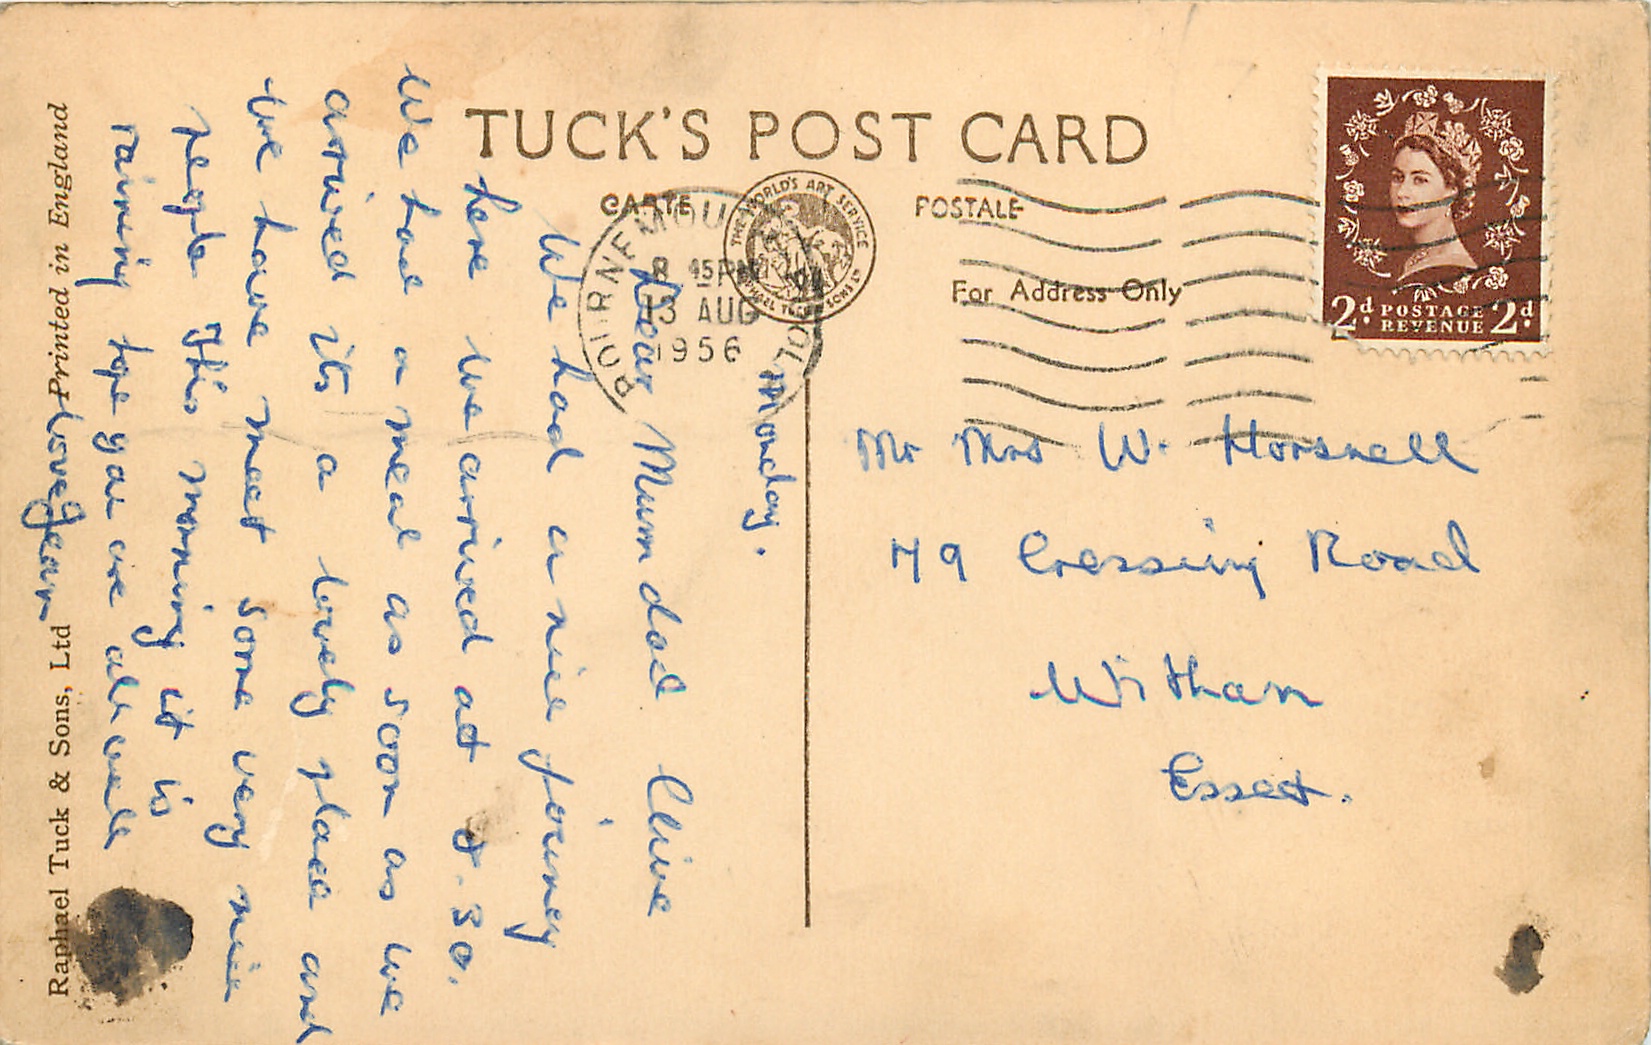 TUCK'S POST CARD
CARTE POSTALE
THE WORLD'S ART SERVICE
RAPHAEL TUCK & SONS LTD
For Address Only
BOURNEMOUTH POOLE
8 45 PM
13 AUG
1956
2d POSTAGE REVENUE 2d
Monday.
Dear Mum dad Clive
We had a nice journey
here we arrived at
30.
We had a meal as soon as we
arrived its a lovely place and
we have meet some very nice
people This morning it is
raining hope you are all well
love Jean
Mr Mrs W. Horsnell
79 Cressing Road
Witham
Essex.
Raphael Tuck & Sons, Ltd Printed in England